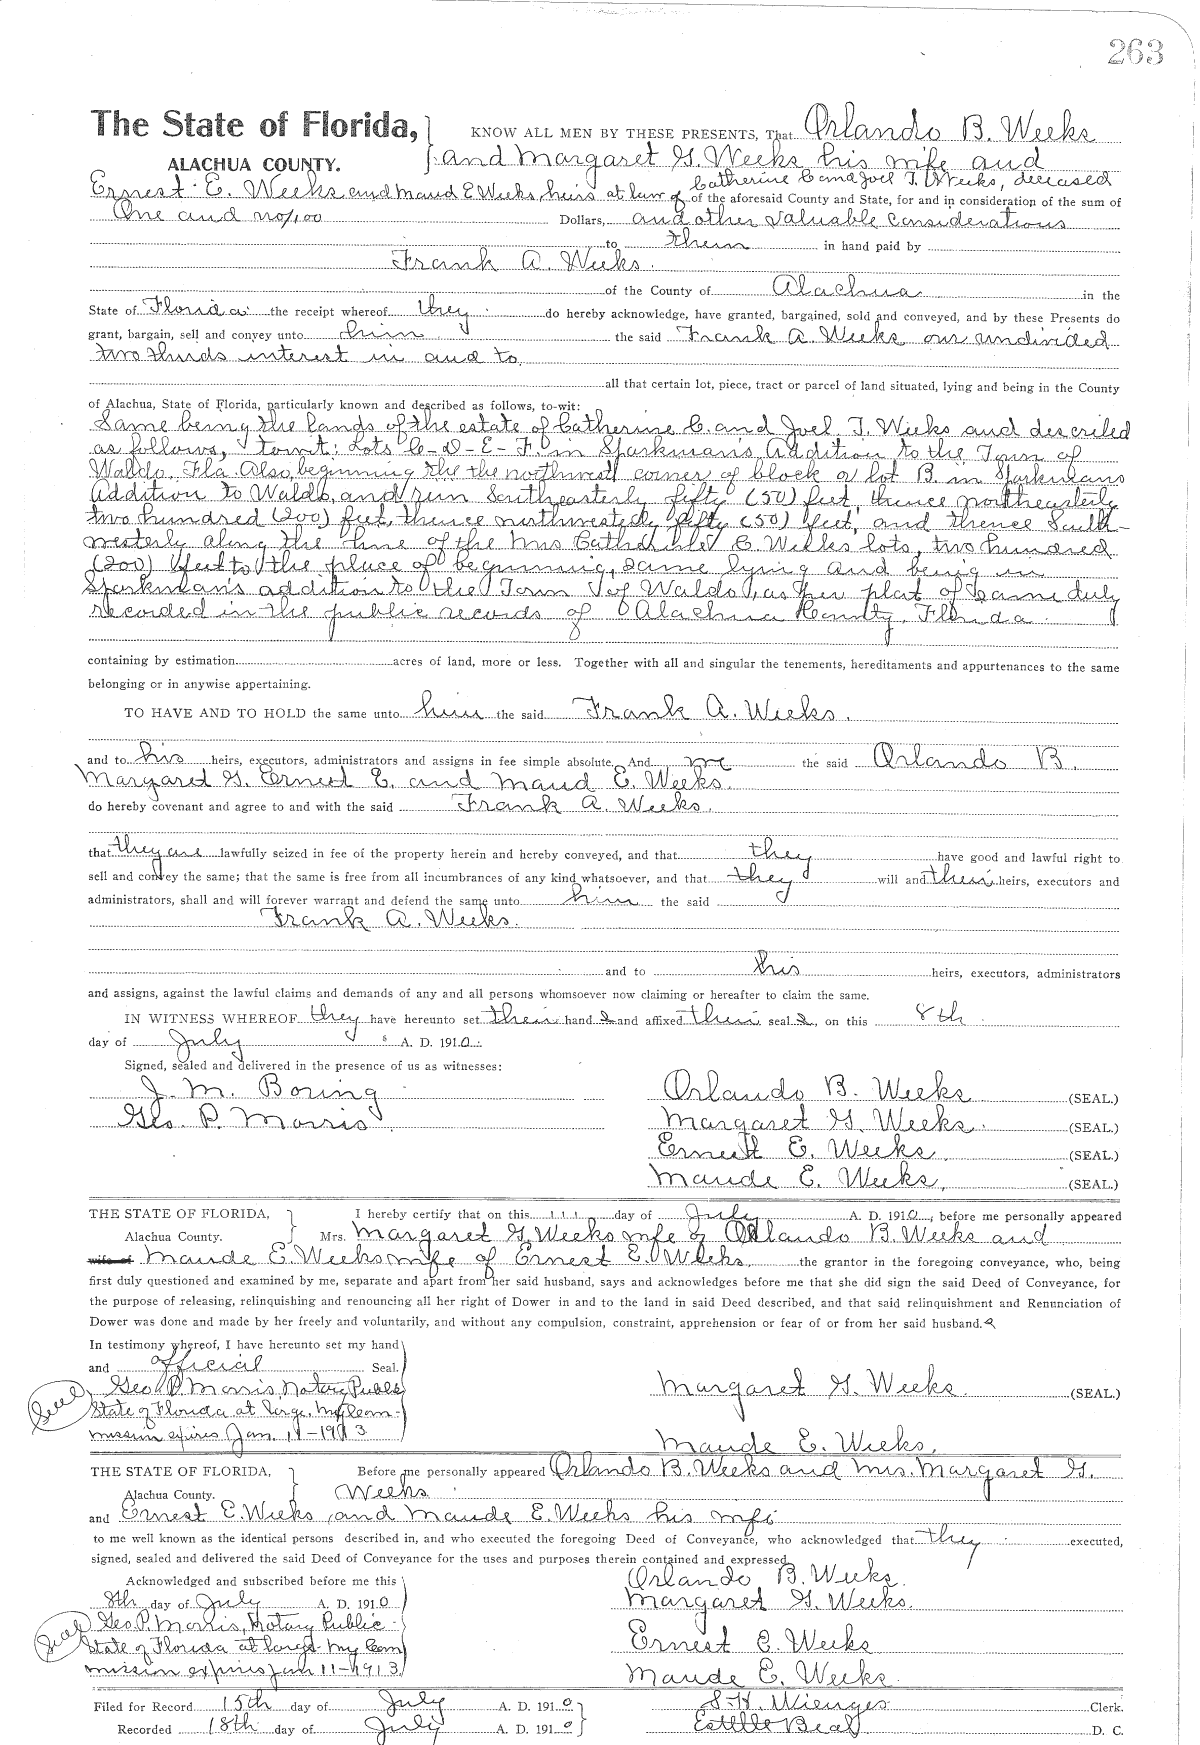 263
The State of Florida, KNOW ALL MEN BY THESE PRESENTS, That Orlando B. Weeks
ALACHUA COUNTY. and Margaret G. Weeks his wife and
Ernest E. Weeks and Maud E Weeks, heirs at law of Catherine C and Joel T. Weeks, deceased
of the aforesaid County and State, for and in consideration of the sum of
One and no/100 Dollars, and other valuable considerations
to them in hand paid by
Frank A. Weeks.
of the County of Alachua in the
State of Florida the receipt whereof they do hereby acknowledge, have granted, bargained, sold and conveyed, and by these Presents do
grant, bargain, sell and convey unto him the said Frank A. Weeks our undivided
two thirds interest in and to
all that certain lot, piece, tract or parcel of land situated, lying and being in the County
of Alachua, State of Florida, particularly known and described as follows, to-wit:
Same being the lands of the estate of Catherine C. and Joel T. Weeks and described
as follows, towit: Lots C-D-E-F. in Sparkman's Addition to the Town of
Waldo, Fla. Also, beginning the the northwest corner of block or lot B. in Sparkmans
Addition to Waldo, and run Southeasterly fifty (50) feet, thence northeasterly
two hundred (200) feet, thence northwesterly fifty (50) feet, and thence South-
westerly along the line of the Mrs Catherine C. Weeks lots, two hundred
(200) feet to the place of beginning, same lying and being in
Sparkman's addition to the Town of Waldo, as per plat of same duly
recorded in the public records of Alachua County, Florida.
containing by estimation acres of land, more or less. Together with all and singular the tenements, hereditaments and appurtenances to the same
belonging or in anywise appertaining.
TO HAVE AND TO HOLD the same unto him the said Frank A. Weeks.
and to his heirs, executors, administrators and assigns in fee simple absolute. And we the said Orlando B.
Margaret G. Ernest E. and Maud E. Weeks.
do hereby covenant and agree to and with the said Frank A. Weeks.
that they are lawfully seized in fee of the property herein and hereby conveyed, and that they have good and lawful right to
sell and convey the same; that the same is free from all incumbrances of any kind whatsoever, and that they will and their heirs, executors and
administrators, shall and will forever warrant and defend the same unto him the said
Frank A. Weeks.
and to his heirs, executors, administrators
and assigns, against the lawful claims and demands of any and all persons whomsoever now claiming or hereafter to claim the same.
IN WITNESS WHEREOF they have hereunto set their hand s and affixed their seal s, on this 8th
day of July A. D. 1910.
Signed, sealed and delivered in the presence of us as witnesses:
J. M. Boring Orlando B. Weeks (SEAL.)
Geo. P. Morris. Margaret G. Weeks. (SEAL.)
Ernest E. Weeks. (SEAL.)
Maude E. Weeks. (SEAL.)
THE STATE OF FLORIDA, I hereby certify that on this day of July A. D. 1910, before me personally appeared
Alachua County. Mrs. Margaret G. Weeks wife of Orlando B. Weeks and
Maude E. Weeks wife of Ernest E. Weeks, the grantor in the foregoing conveyance, who, being
first duly questioned and examined by me, separate and apart from her said husband, says and acknowledges before me that she did sign the said Deed of Conveyance, for
the purpose of releasing, relinquishing and renouncing all her right of Dower in and to the land in said Deed described, and that said relinquishment and Renunciation of
Dower was done and made by her freely and voluntarily, and without any compulsion, constraint, apprehension or fear of or from her said husband.
In testimony whereof, I have hereunto set my hand
and official Seal.
Seal Geo P. Morris, Notary Public Margaret G. Weeks. (SEAL.)
State of Florida at large, My Com-
mission expires Jan. 11-1913 Maude E. Weeks.
THE STATE OF FLORIDA, Before me personally appeared Orlando B. Weeks and Mrs. Margaret G.
Alachua County. Weeks
and Ernest E. Weeks, and Maude E. Weeks his wife
to me well known as the identical persons described in, and who executed the foregoing Deed of Conveyance, who acknowledged that they executed,
signed, sealed and delivered the said Deed of Conveyance for the uses and purposes therein contained and expressed
Acknowledged and subscribed before me this Orlando B. Weeks.
8th day of July A. D. 1910 Margaret G. Weeks.
Seal Geo. P. Morris, Notary Public
State of Florida at large. My Com Ernest E. Weeks
mission expires Jan 11-1913. Maude E. Weeks.
Filed for Record 15th day of July A. D. 1910 S. H. Wienges Clerk.
Recorded 18th day of July A. D. 1910 Estelle Beal D. C.